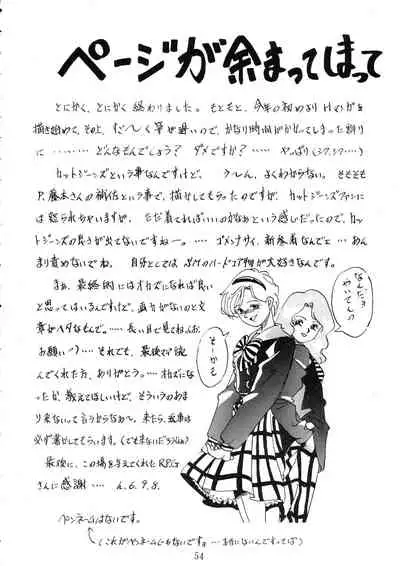 ページが余まってしまって
とにかく、とにかく終わりました。もともと、今年の初めより
描き始めて、その上、だ〜しく筆が遅いので、かなり時間がかかってしまった割り
に…………どんなもんでしょう？ダメですか？……やっぱり
カットジーンズという事なんですけど、う〜しん、よくわからない。そもそも
P.藤本さんの補佐という事で、描かせてもらったのですが、カットジーンズファンに
は怒られちゃいますが、ただ着てればいいのかなぁという感じだったので、カッ
トジーンズの良さが出てないですねー。……ゴメンナサイ、新参者なんでと…あん
まり責めないでね。自分としてはSMのハードコア物が大好きなんです。
まぁ、最終的にはオカズになれば良い
と思ってはいるんですけど、画力がないのと文
章がヘタなもんで。……長い目で見てね
お願い……それでも、最後まで読
んでくれた方、ありがとう。…オカズに
なったか、教えてほしいけど、そういうのあま
り来ないって言うからなあ〜。来たら、返事は
必ず書かせてもらいます。
最後に、この場を与えてくれたRPG
さんに感謝……4.6.9.8.
ペンネームはないです。
なんだよ
そーかも
54